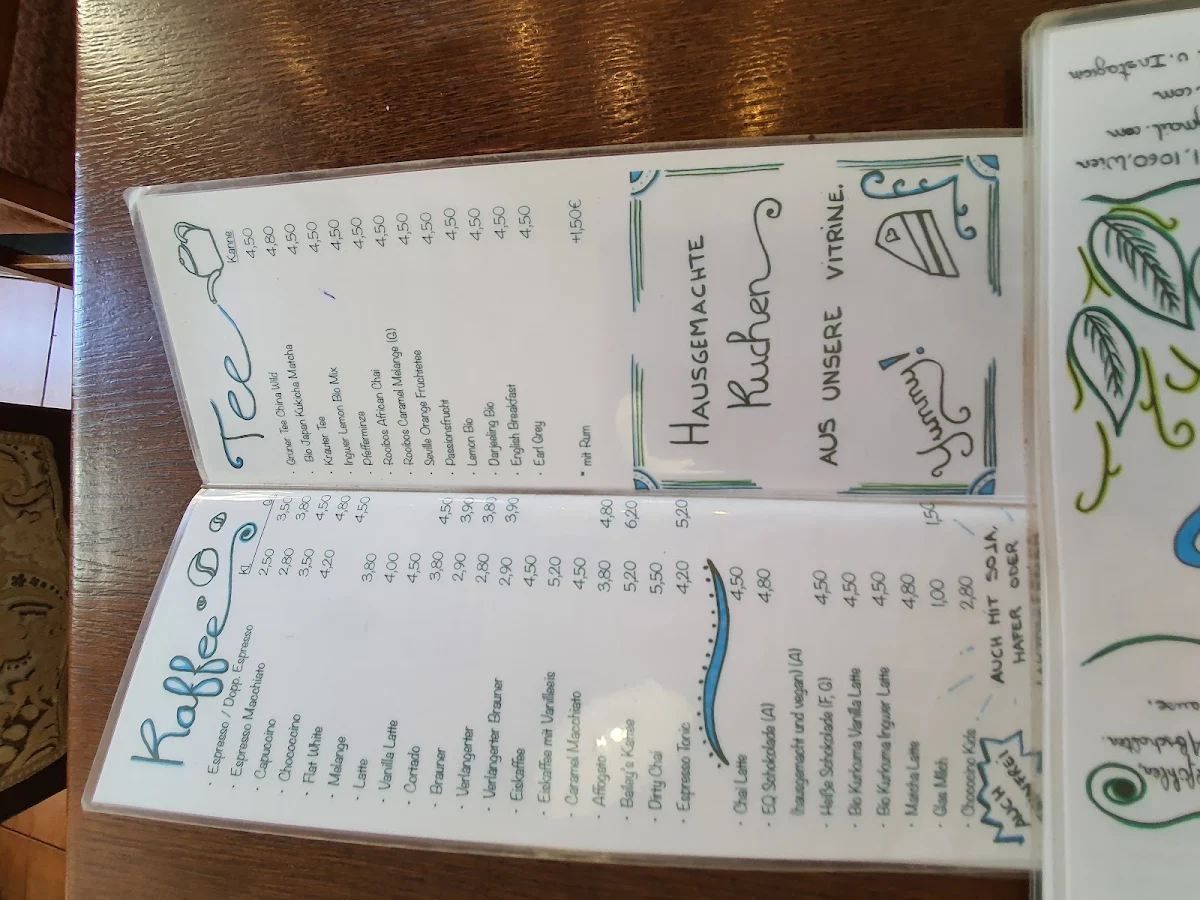 Kaffee
Kl
· Espresso / Dopp. Espresso 2,50 3,50
· Espresso Macchiato 2,80 3,80
· Capuccino 3,50 4,50
· Chococcino 4,20 4,80
· Flat White 4,50
· Melange 3,80
· Latte 4,00
· Vanilla Latte 4,50
· Cortado 3,80 4,50
· Brauner 2,90 3,90
· Verlängerter 2,80 3,80
· Verlängerter Brauner 2,90 3,90
· Eiskaffee 4,50
· Eiskaffee mit Vanilleeis 5,20
· Caramel Macchiato 4,50
· Affogato 3,80 4,80
· Bailey's Kaffee 5,20 6,20
· Dirty Chai 5,50
· Espresso Tonic 4,20 5,20
· Chai Latte 4,50
· EQ Schokolade (A) 4,80
(hausgemacht und vegan) (A)
· Heiße Schokolade (F, G) 4,50
· Bio Kurkuma Vanilla Latte 4,50
· Bio Kurkuma Ingwer Latte 4,50
· Matcha Latte 4,80
· Glas Milch 1,00 1,50
· Chococcino Kids 2,80
AUCH
AUCH MIT SOJA,
HAFER ODER
Tee
Kanne
· Grüner Tee China Wild 4,50
· Bio Japan Kukicha Matcha 4,80
· Kräuter Tee 4,50
· Ingwer Lemon Bio Mix 4,50
· Pfefferminze 4,50
· Rooibos African Chai 4,50
· Rooibos Caramel Melange (G) 4,50
· Seville Orange Früchtetee 4,50
· Passionsfrucht 4,50
· Lemon Bio 4,50
· Darjeeling Bio 4,50
· English Breakfast 4,50
· Earl Grey 4,50
* mit Rum +1,50€
HAUSGEMACHTE
Kuchen
AUS UNSERE VITRINE.
Yummy!
u. Instagram
.com
gmail.com
1, 1060, Wien